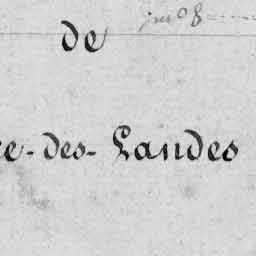 de
e-des-Landes